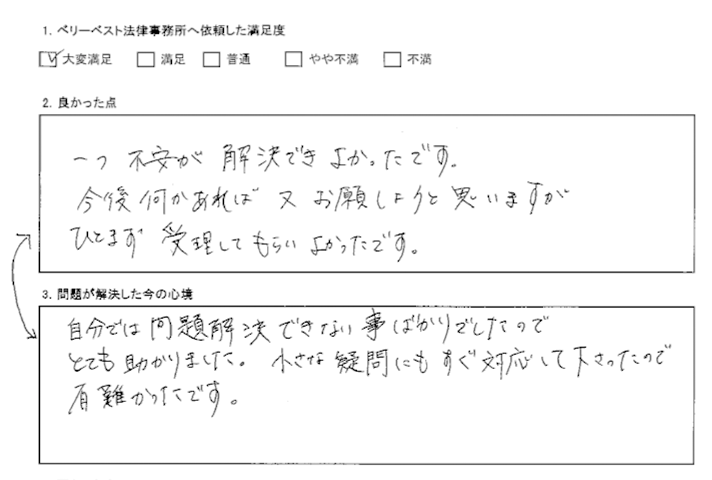 1. ベリーベスト法律事務所へ依頼した満足度
大変満足 満足 普通 やや不満 不満
2. 良かった点
一つ 不安が 解決でき よかったです。
今後何かあれば 又 お願しようと思いますが
ひとまず 受理してもらい よかったです。
3. 問題が解決した今の心境
自分では 問題解決 できない 事ばかりでしたので
とても 助かりました。 小さな 疑問にも すぐ 対応して下さったので
有難かったです。